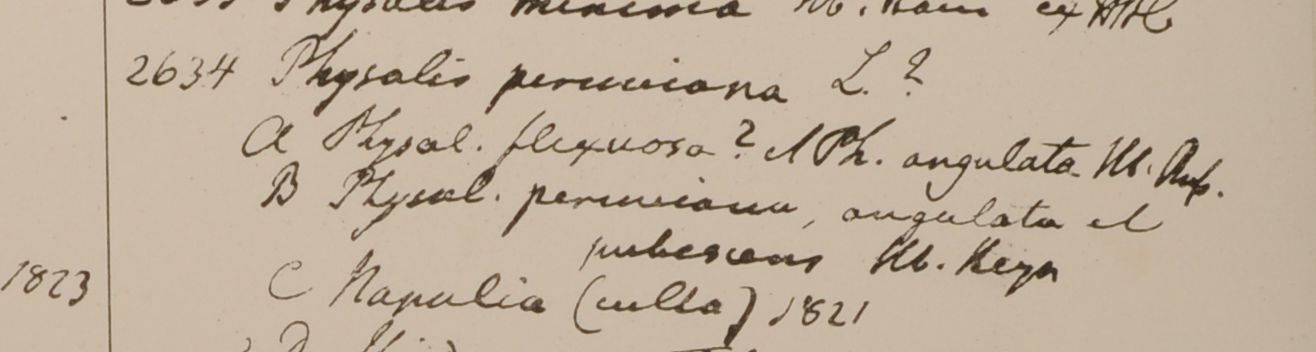 Physalis minima Hb. Ham ex
2634 Physalis peruviana L.?
A Physal. flexuosa? et Ph. angulata Hb. Rux.
B Physal. peruviana, angulata et
pubescens Hb. Heyn
1823 C Napalia (culta) 1821